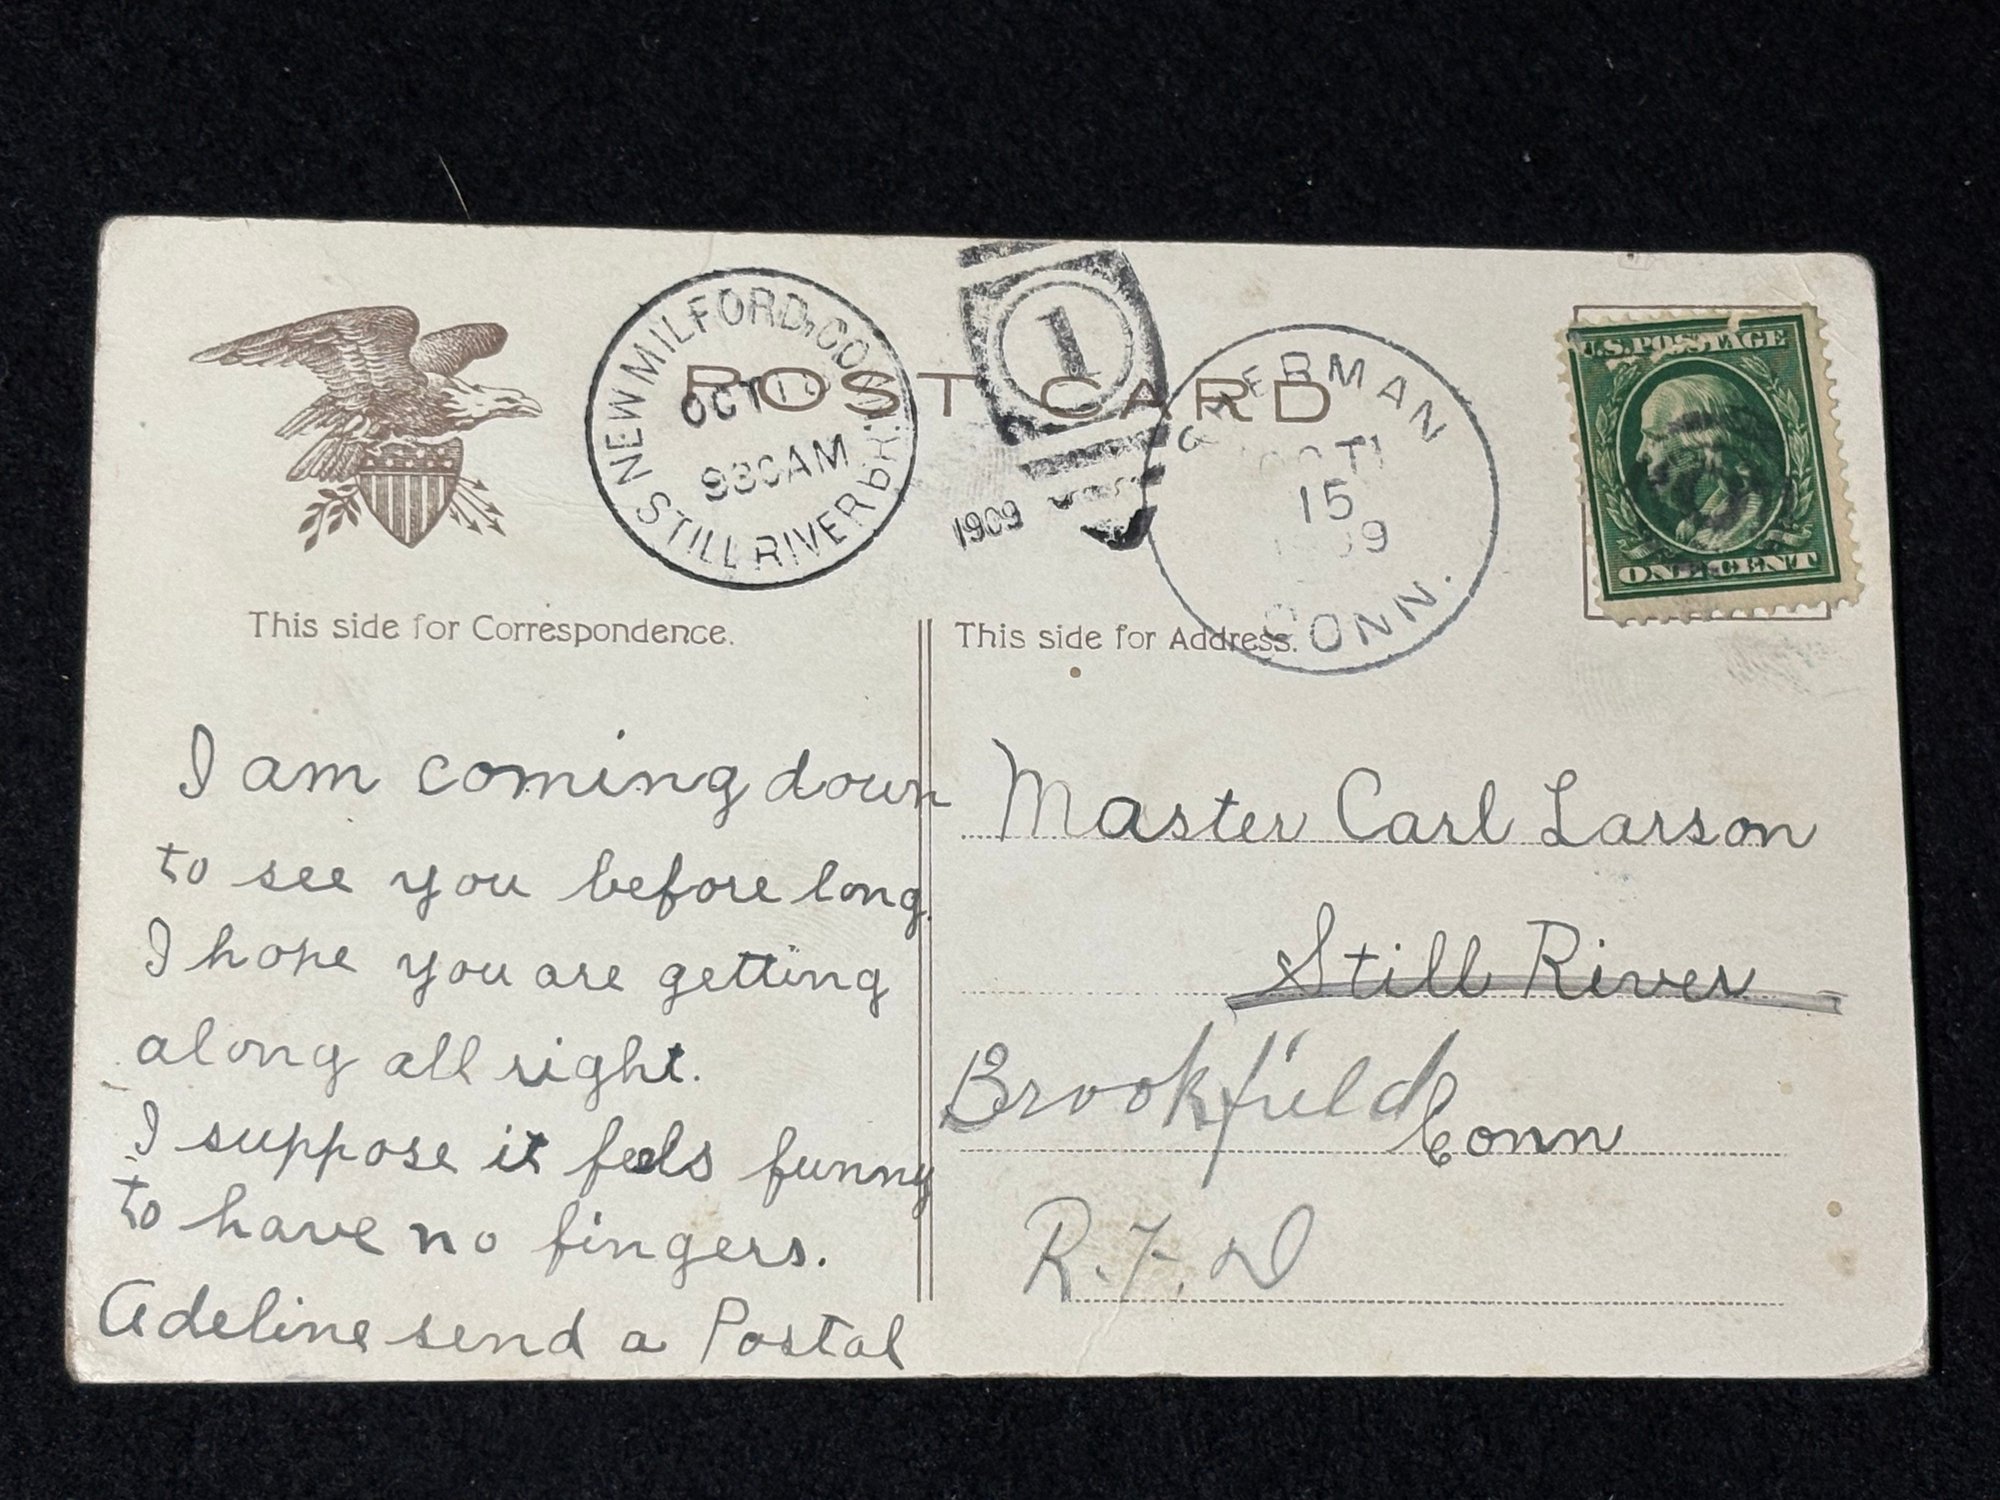 NEW MILFORD, CONN.
OCT
930AM
STILL RIVER BR.
1
1909
GAERMAN
OCT
15
CONN.
U.S. POSTAGE
ONE CENT
POST CARD
This side for Correspondence.
This side for Address.
I am coming down
to see you before long.
I hope you are getting
along all right.
I suppose it feels funny
to have no fingers.
Adeline send a Postal
Master Carl Larson
Still River
Brookfield Conn
R.F.D